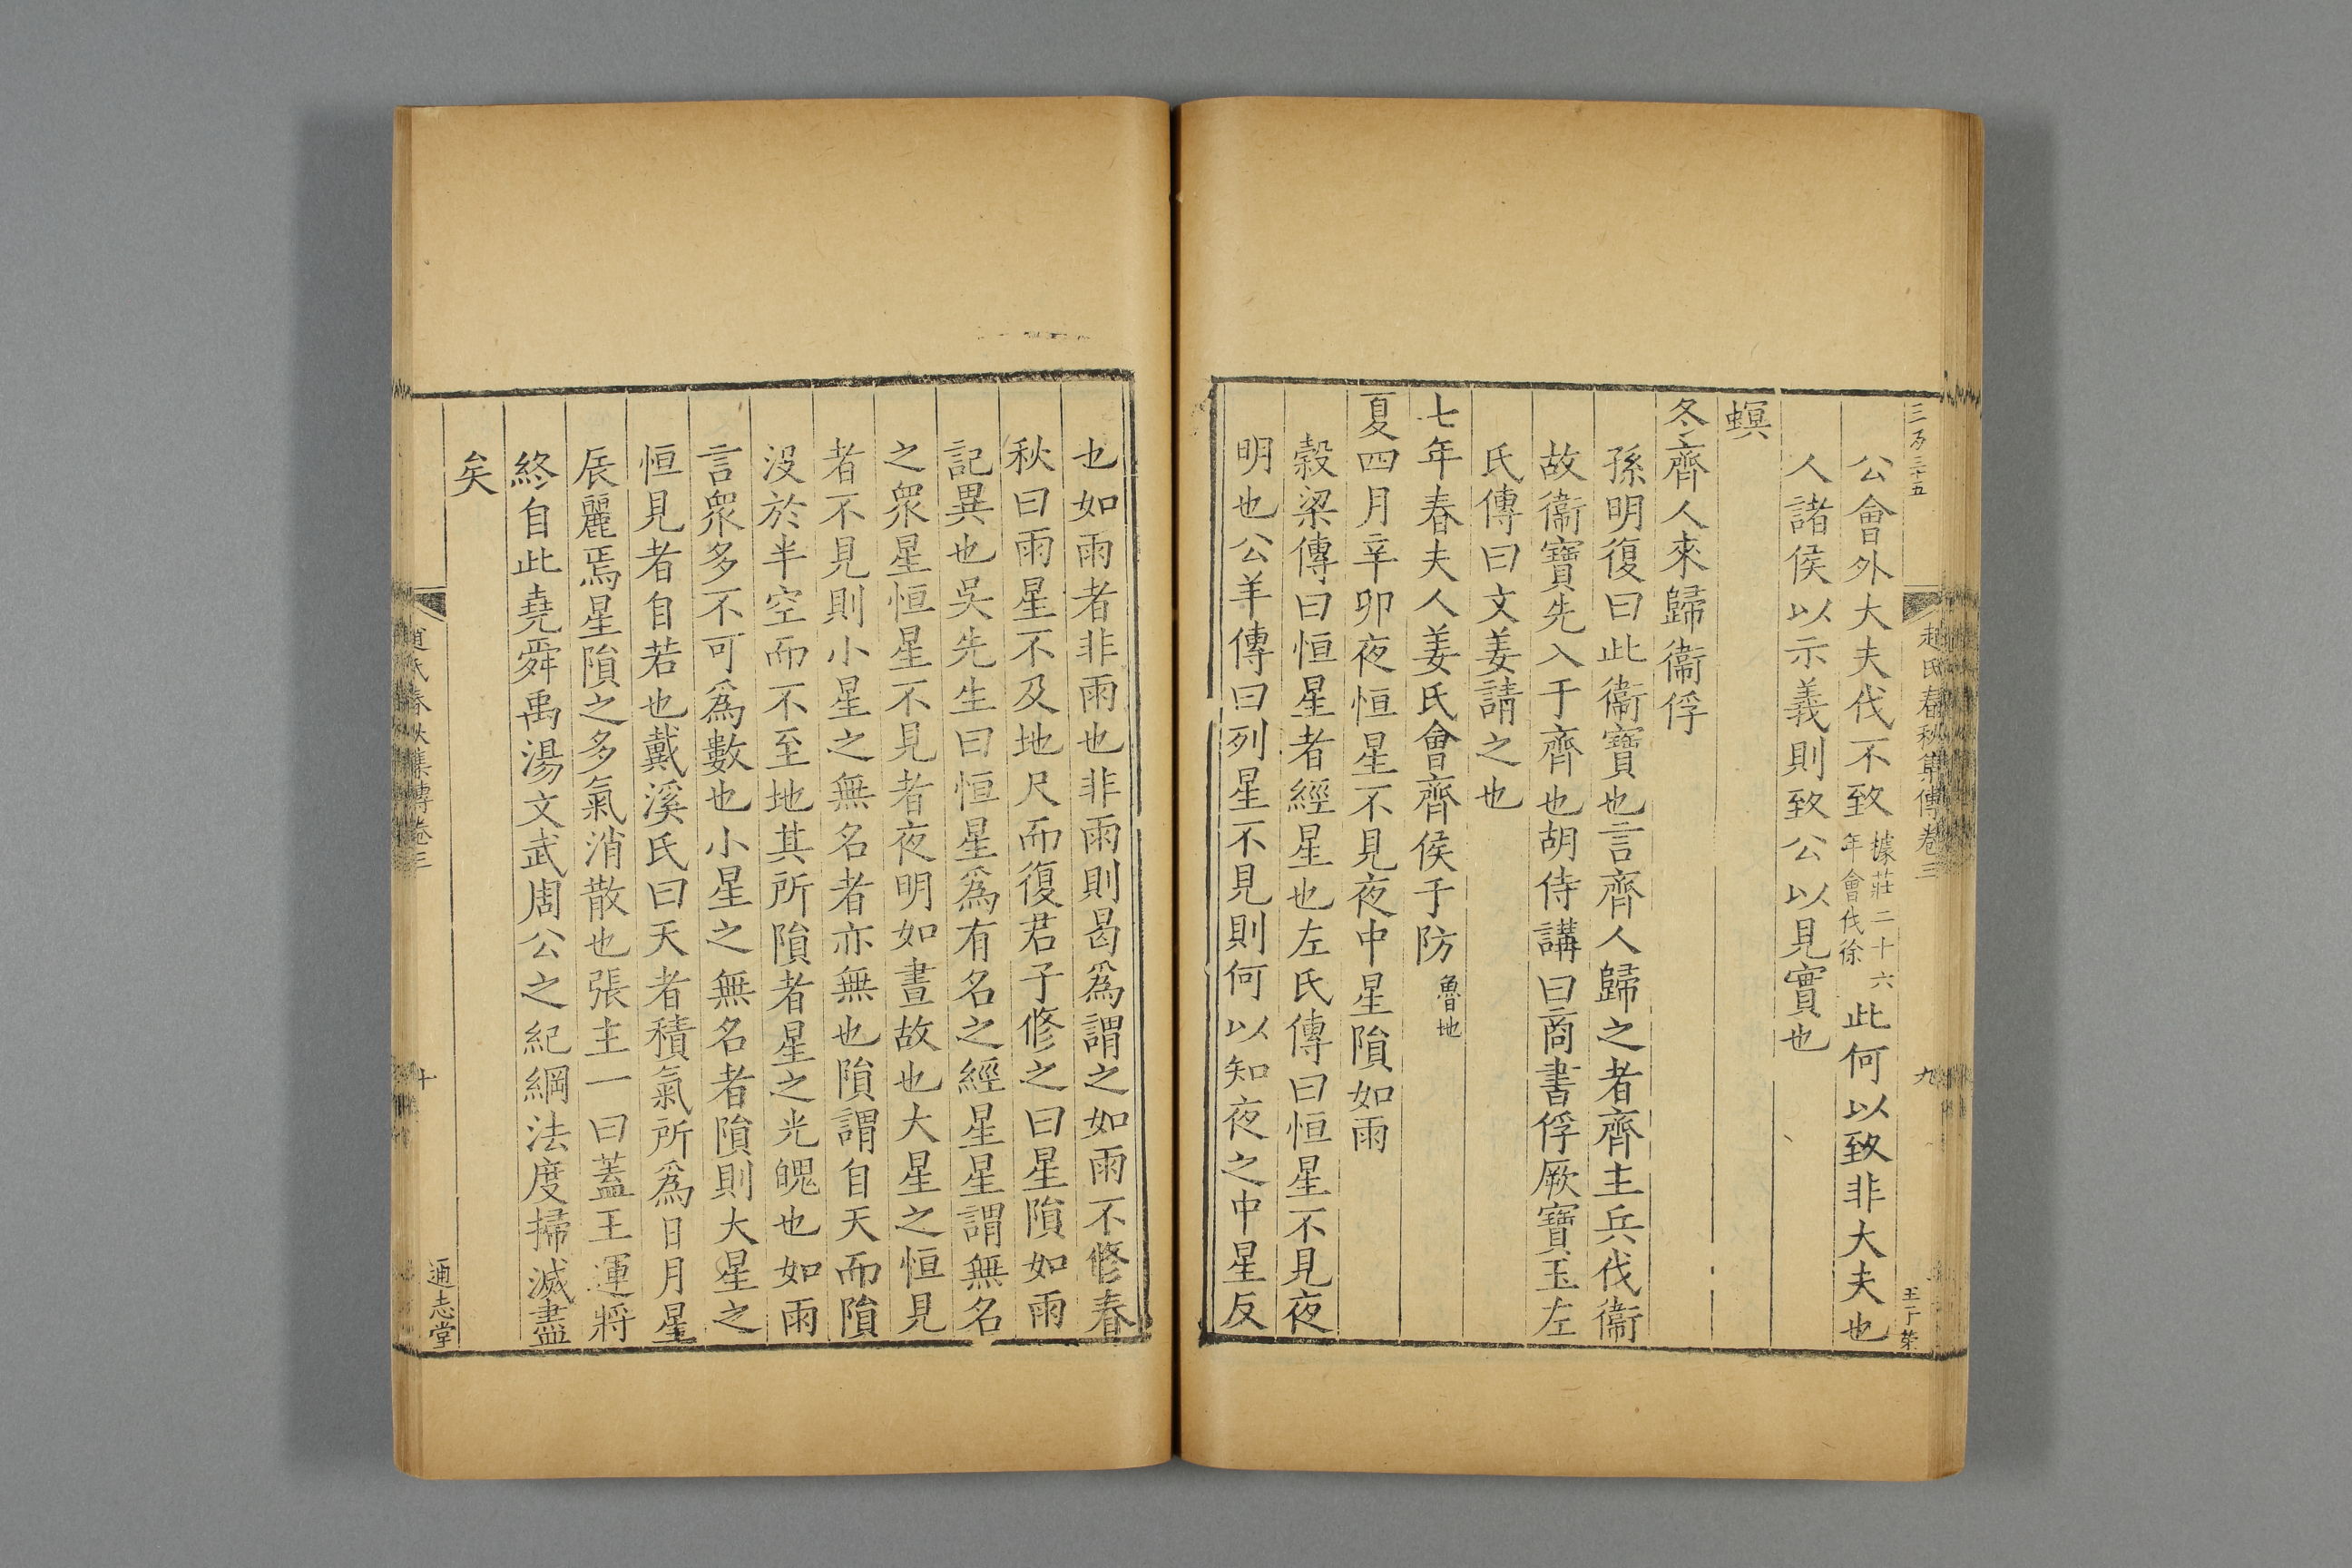 趙氏春秋集傳卷三
九
公會外大夫伐不致據莊二十六年會伐徐此何以致非大夫也
人諸侯以示義則致公以見實也
螟
冬齊人來歸衞俘
孫明復曰此衞寶也言齊人歸之者齊主兵伐衞
故衞寶先入于齊也胡侍講曰商書俘厥寶玉左
氏傳曰文姜請之也
七年春夫人姜氏會齊侯于防魯地
夏四月辛卯夜恒星不見夜中星隕如雨
榖梁傳曰恒星者經星也左氏傳曰恒星不見夜
明也公羊傳曰列星不見則何以知夜之中星反
也如雨者非雨也非雨則曷爲謂之如雨不修春
秋曰雨星不及地尺而復君子修之曰星隕如雨
記異也吳先生曰恒星爲有名之經星星謂無名
之衆星恒星不見者夜明如晝故也大星之恒見
者不見則小星之無名者亦無也隕謂自天而隕
沒於半空而不至地其所隕者星之光魄也如雨
言衆多不可爲數也小星之無名者隕則大星之
恒見者自若也戴溪氏曰天者積氣所爲日月星
辰麗焉星隕之多氣消散也張主一曰蓋王運將
終自此堯舜禹湯文武周公之紀綱法度掃滅盡
矣
趙氏春秋集傳卷三
十
通志堂